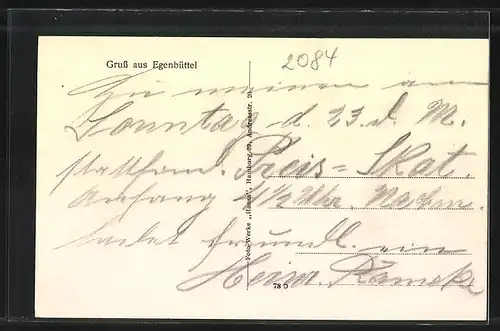 2084
Gruß aus Egenbüttel
Zu meinem am
Sonntag d. 23. d. M.
stattfind. Preis=Skat.
Anfang 4 1/2 Uhr. Nachm.
ladet freundl. ein
Heinr. Ramcke
Foto-Werke „Hansa“, Hamburg 39, Andreasstr. 29.
78 D